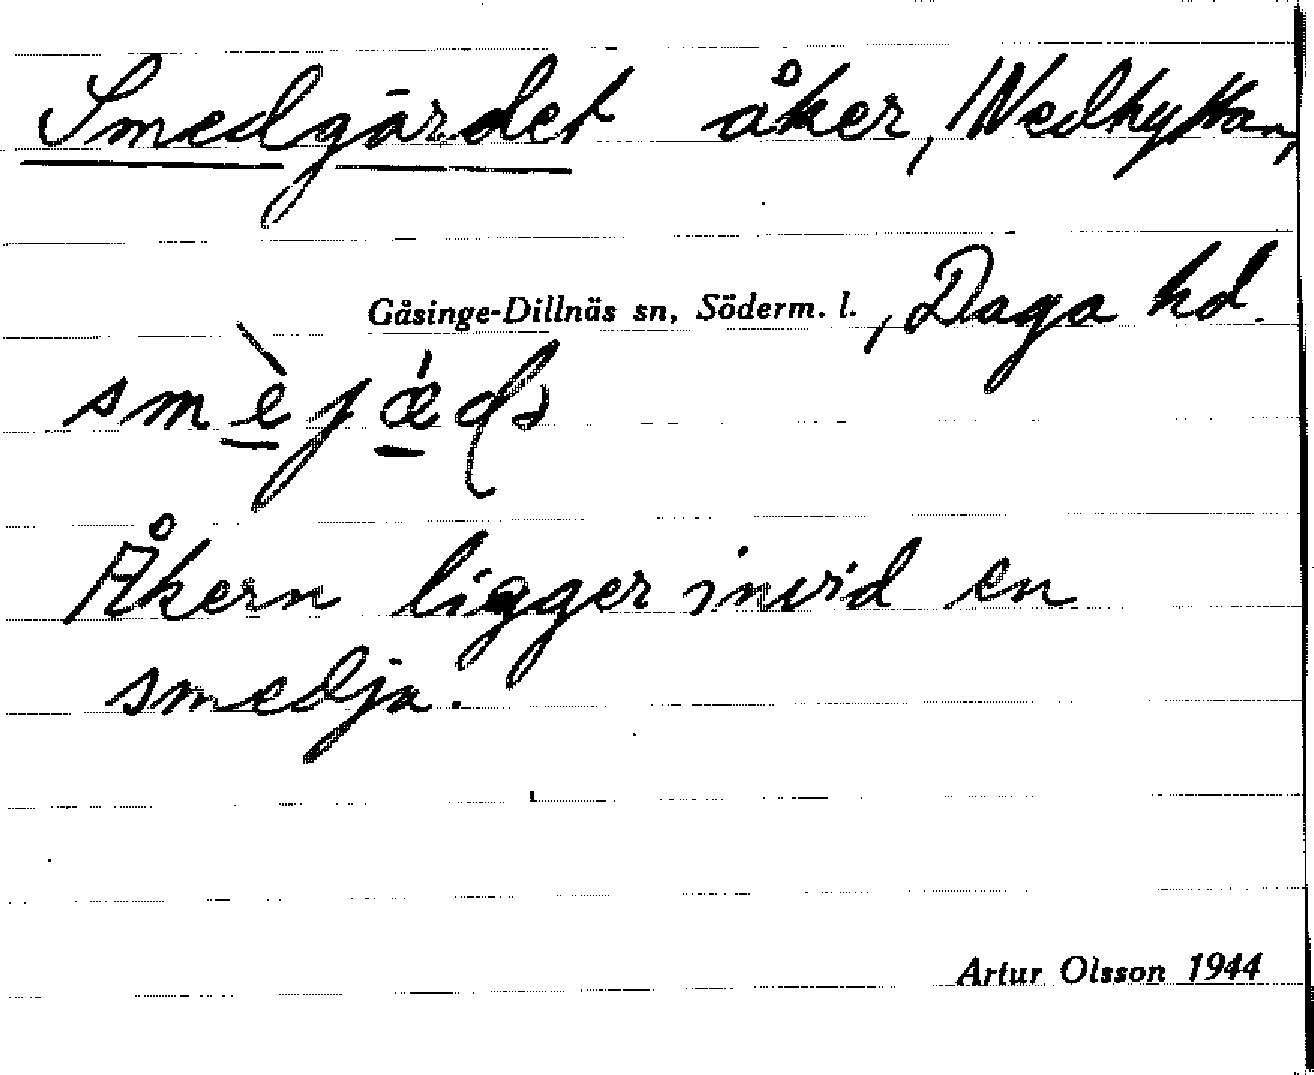 Smedgärdet åker, Nedhyttan,
Gåsinge-Dillnäs sn, Söderm. l., Daga hd.
Åkern ligger invid en
smedja.
Artur Olsson 1944